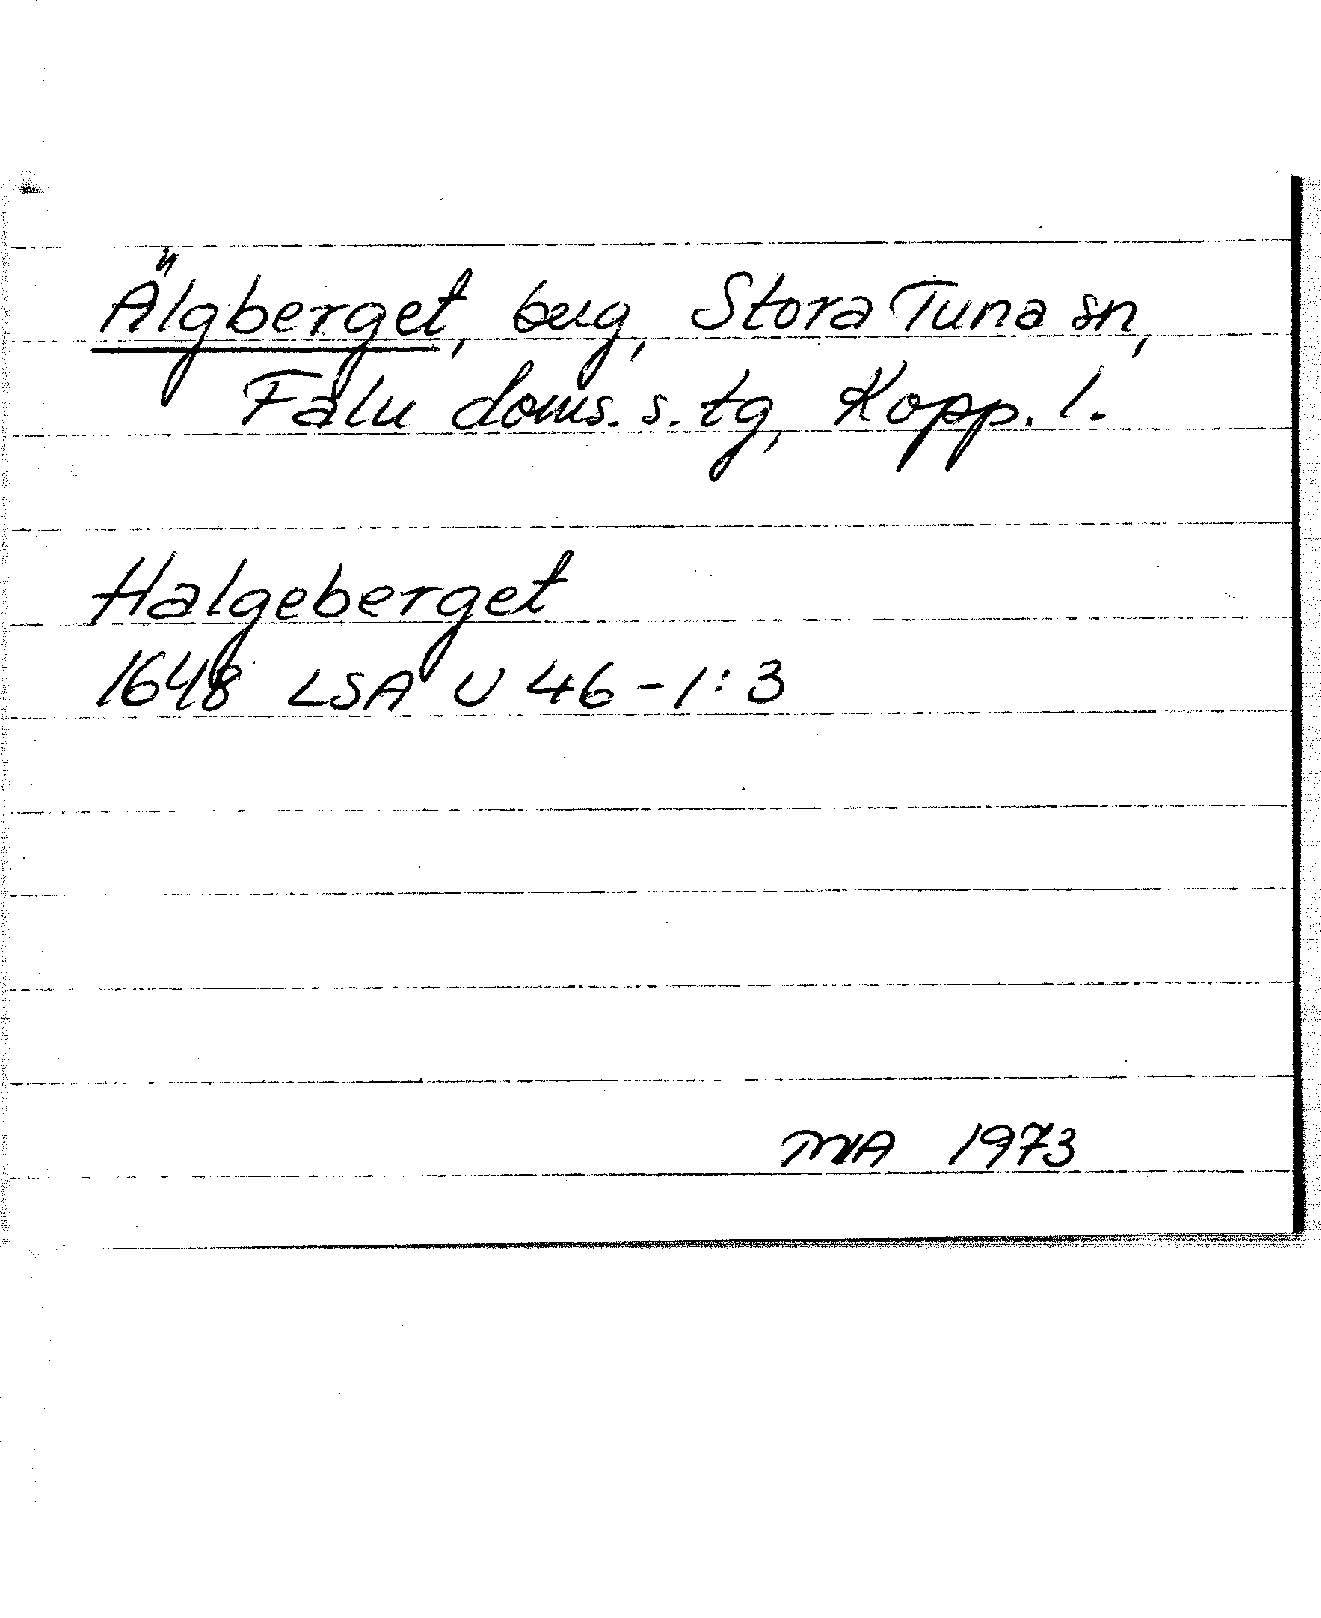 Älgberget, berg, Stora Tuna sn,
Falu doms. s. tg, Kopp. l.
Halgeberget
1648 LSA U 46-1:3
MA 1973